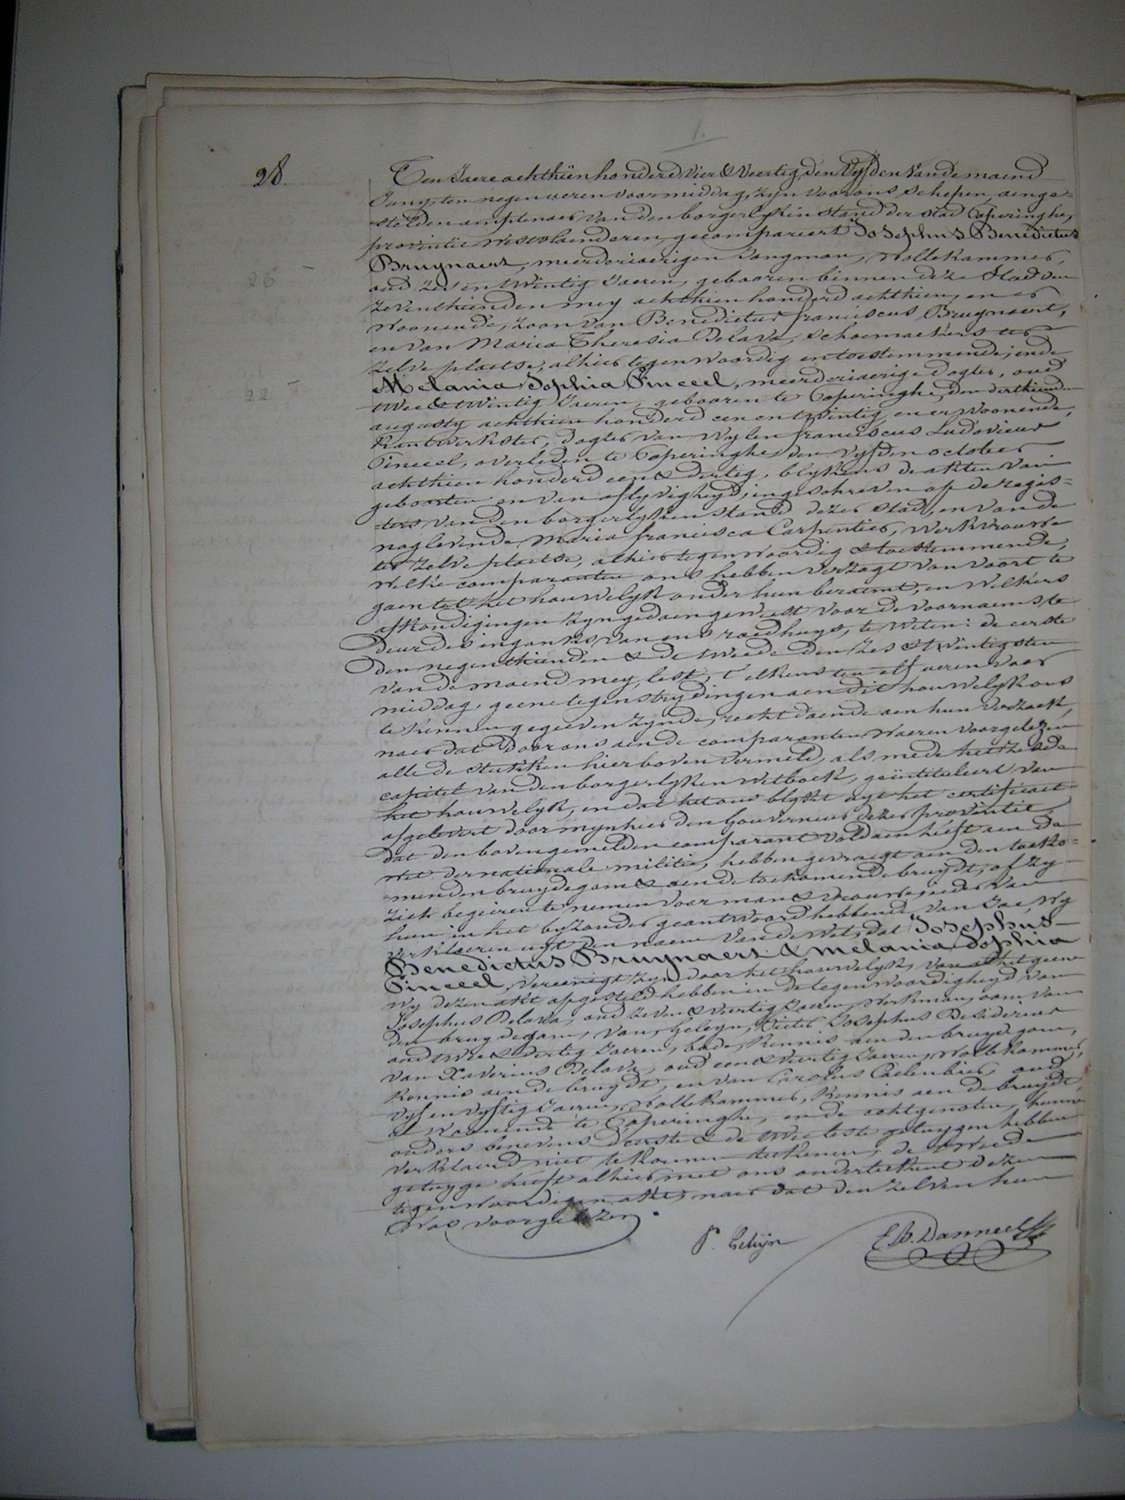 1.
28.
Ten Jaere achthien honderd vier & veertig, den vyfden van de maend
Juny, ten negen ueren voormiddag, zyn voor ons Schepen, aenge-
stelden amptenaer van den borgerlyken stand der stad Poperinghe,
provintie Westvlaenderen, gecompareert Josephus Benedictus
Bruynaert, meerderjaerigen Jongman, wollekammer,
oud zes en twintig Jaeren, gebooren binnen deze Stad den
zeventhienden mey achthien honderd achthien, en er
woonende, zoon van Benedictus Franciscus Bruynaert,
en van Maria Theresia Delava, schoenmaekers ter
zelve plaetse, alhier tegenwoordig en toestemmende; ende
Melania Sophia Pineel, meerderjaerige dogter, oud
twee & twintig Jaeren, gebooren te Poperinghe den derthienden
augusty achthien honderd een en twintig, en er woonende,
Kantwerkster, dogter van wylen Franciscus Ludovicus
Pineel, overleden te Poperinghe den vyfden october
achthien honderd een & dertig, blykens de akten van
geboorten en van aflyvigheyd, ingeschreven op de regis-
ters van den borgerlyken stand dezer stad, en van de
nog levende Maria Francisca Carpentier, werkvrouwe
ter zelve plaetse, alhier tegenwoordig & toestemmende,
welke comparanten ons hebben verzogt van voort te
gaen tot het houwelyk onder hun beraemt, en welkers
afkondigingen zyn gedaen geweest voor de voornaemste
deur des ingangs van ons raedhuys, te weten: de eerste
den negenthienden & de tweede den zes & twintigsten
van de maend mey lest, telkens ten elf ueren voor
middag, geene tegenstrydingen aen dit houwelyk ons
te kennen gegeeven zynde, recht doende aen hun verzoek,
naer dat door ons aen de comparanten waeren voorgelezen
alle de stukken hier boven vermeld, als mede het zesde
capitel van den borgerlyken wetboek, geïntituleert van
het houwelyk, en dat het ons blykt uyt het certificaet
afgelevert door mynheer den Gouverneur dezer provintie
dat den bovengemelden comparant voldaen heeft aen de
wet der nationale militie, hebben gevraegt aen den toeko-
menden bruydegom & aen de toekomende bruydt, of zy
zich begeeren te nemen voor man & vrouw, ieder van
hun in het byzonder geantwoord hebbende van Jae, wy
verklaeren uyt den naem van de wet, dat Josephus
Benedictus Bruynaert & Melania Sophia
Pineel, vereenigt zyn door het houwelyk, van al het geene
wy dezen akt opgesteld hebben in de tegenwoordigheyd van
Josephus Delava, oud zeven & veertig Jaeren, werkman, oom van
den bruydegom, van Geleyn, Pieter Josephus Desiderius
oud twee & dertig Jaeren, bode, kennis aen den bruydegom,
van Xaverius Delava, oud een & veertig Jaeren, wollekammer,
kennis aen de bruydt, en van Carolus Caelenbier, oud
vyf en vyftig Jaeren, wollekammer, kennis aen de bruydt,
& woonende te Poperinghe, en de echtgenoten, hunne
ouders benevens d'eerste & de twee leste getuygen hebben
verklaerd niet te konnen teekenen, de tweede
getuyge heeft alhier met ons onderteekent dezen
tegenwoordigen akt, naer dat den zelven hun
was voorgelezen.
P. Geleyn
E. B. Danneel